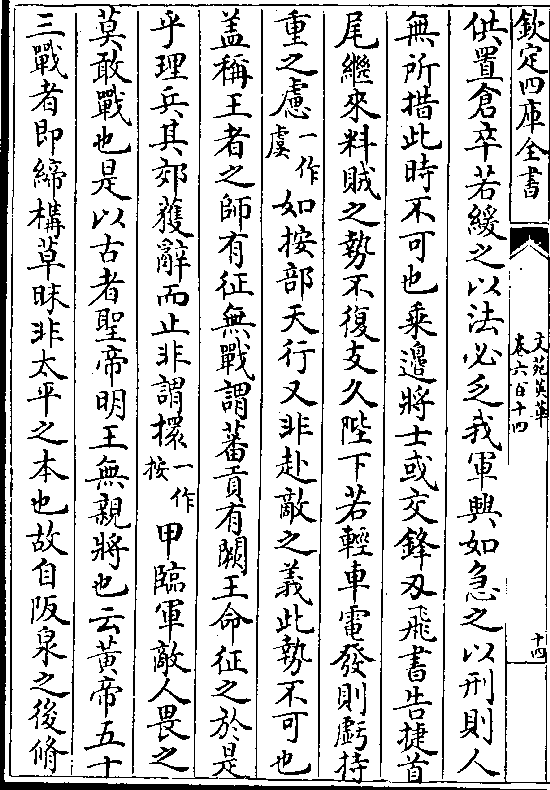 欽定四庫全書
文苑英華
卷六百十四
十四
供置倉卒若緩之以法必乏我軍興如急之以刑則人
無所措此時不可也乘邉將士或交鋒刃飛書告捷首
尾繼來料賊之勢不復支久陛下若輕車電發則虧持
重之慮一作虞如按部天行又非赴敵之義此勢不可也
盖稱王者之師有征無戰謂蕃貢有闕王命征之於是
乎理兵其郊獲辭而止非謂擐一作按甲臨軍敵人畏之
莫敢戰也是以古者聖帝明王無親將也云黄帝五十
三戰者即締構草昧非太平之本也故自阪泉之後脩